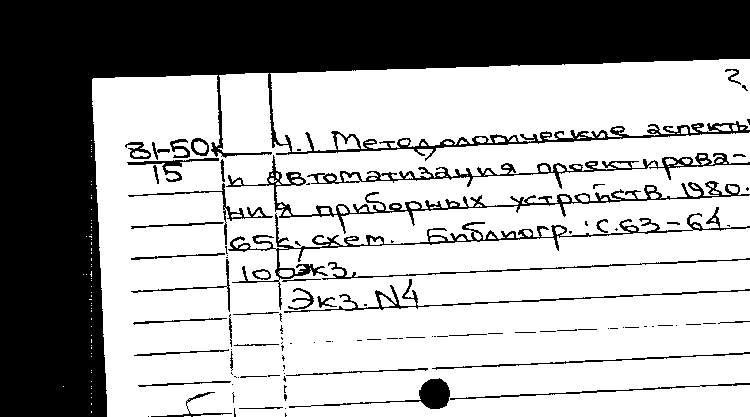 2.
81-50к Ч.1 Методологические аспекты
15 и автоматизация проектирова-
ния приборных устройств. 1980.
65с., схем. Библиогр.: С.63-64.
100 экз.
Экз. N4